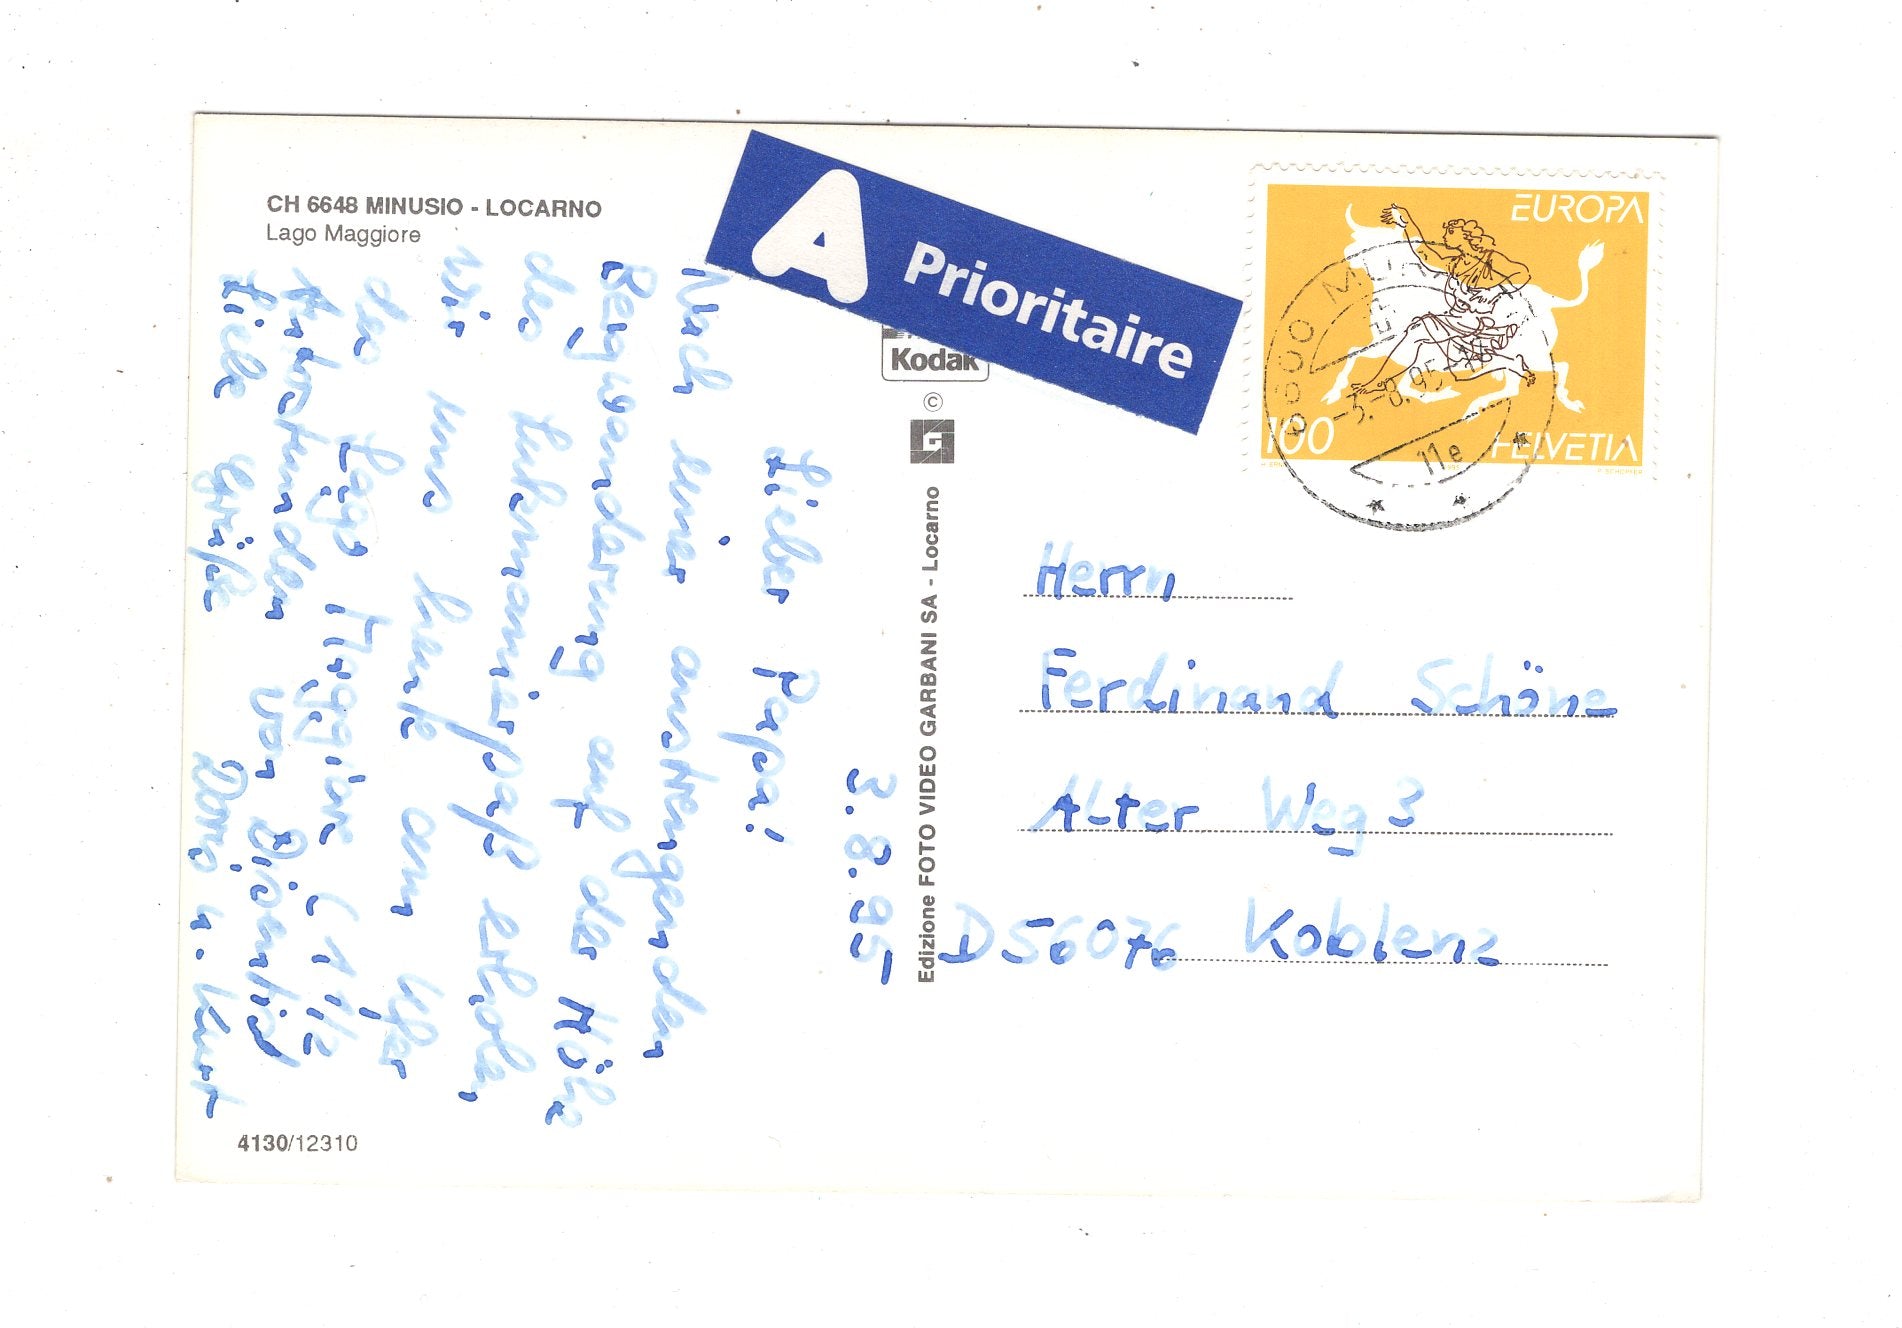 CH 6648 MINUSIO - LOCARNO
Lago Maggiore
A Prioritaire
Kodak
©
G
Edizione FOTO VIDEO GARBANI SA - Locarno
4130/12310
EUROPA
100
HELVETIA
-3.-8.95
11e
3.8.95
Lieber Papa!
Nach einer anstrengenden
Bergwanderung auf der Höhe
des Lukmanierpaß erholen
wir uns heute am Ufer
des Lago Maggiore (1 1/2
Autostunden von Disentis)
Liebe Grüße Doro u. Kurt
Herrn
Ferdinand Schöne
Alter Weg 3
D 56076 Koblenz